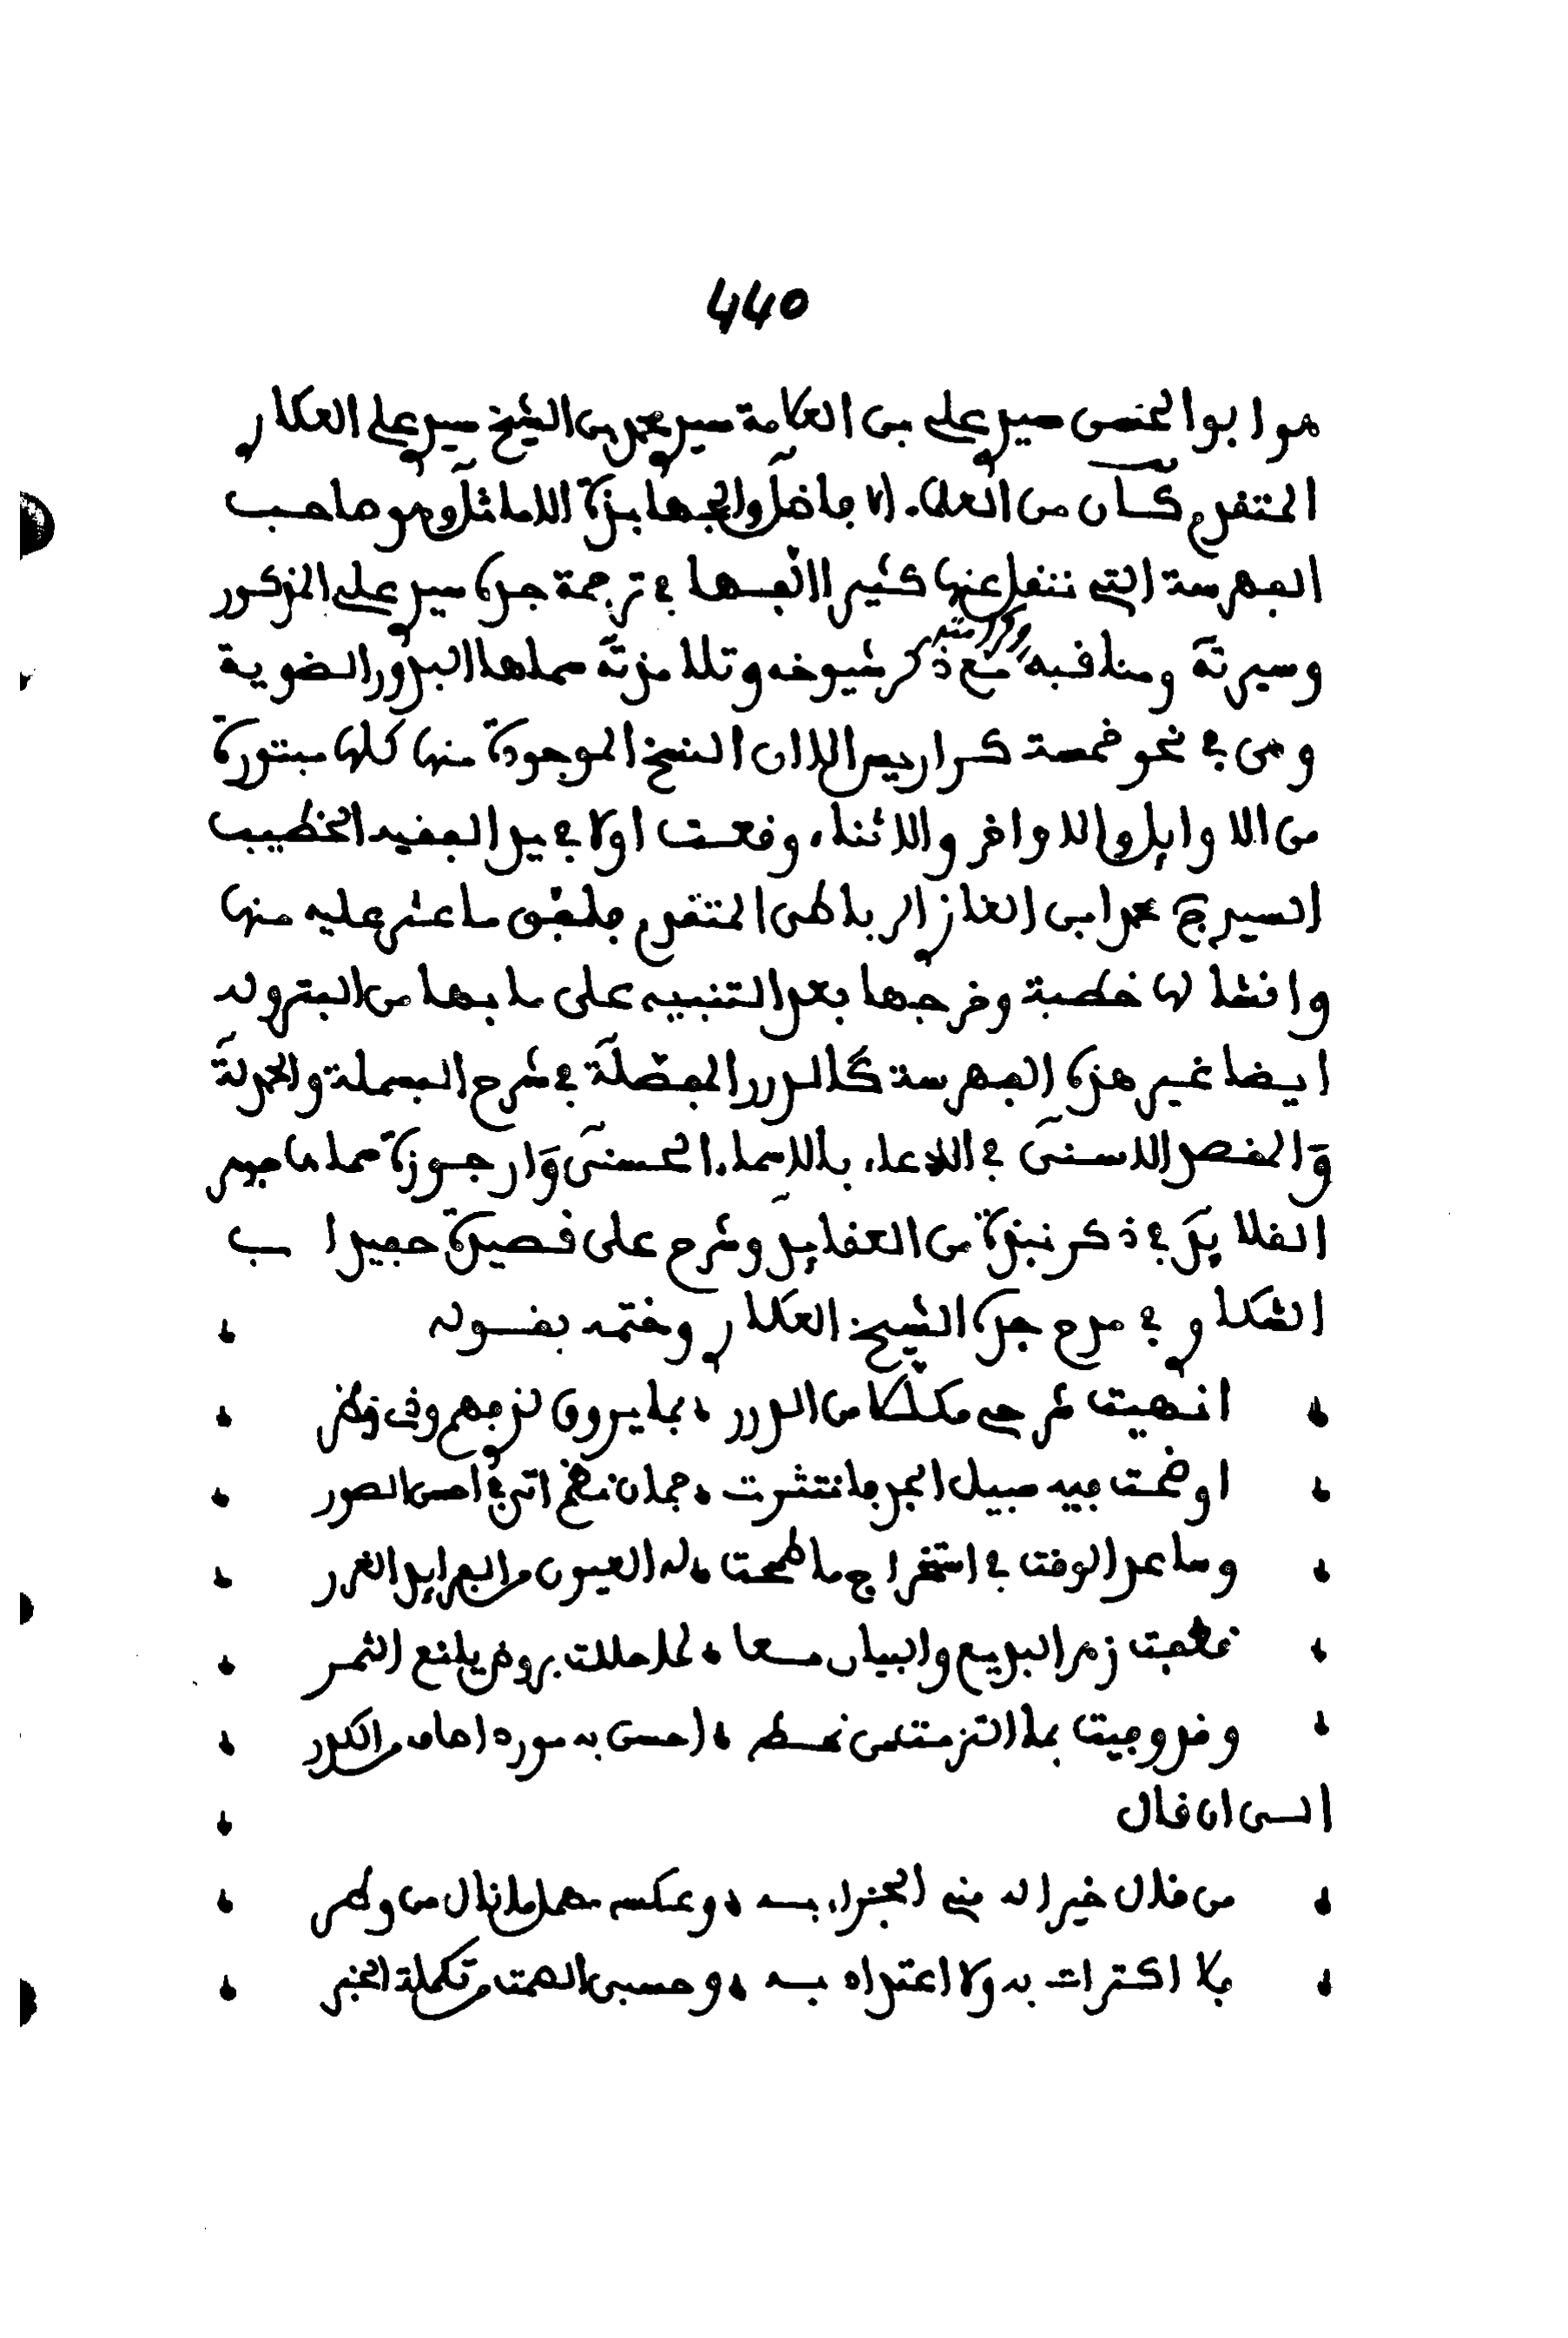 440
هو ابو الحسن سيدي علي بن العلامة سيدي محمد بن الشيخ سيدي علي العكاري
المتقدم كان من العلماء الافاضل والجهابذة الاماثل وهو صاحب
الفهرسة التي ننقل عنها كثيرا الفها في ترجمة جده سيدي علي المذكور
وسيرته ومناقبه وكراماته مع ذكر شيوخه وتلامذته سماها البدور الضوية
وهي في نحو خمسة كراريس الا ان النسخ الموجودة منها كلها مبتورة
من الاوايل والاواخر والاثناء وقعت اولا في يد الفقيد الخطيب
السيد ج محمد ابن الغازي الرباطي المتقدم فلفق ما عثر عليه منها
وانشا لها خطبة وخرجها بعد التنبيه على ما بها من البتر وله
ايضا غير هذه الفهرسة كالدرر المفصلة في شرح البسملة والحمدلة
والمقصد الاسنى في الدعاء بالاسماء الحسنى وارجوزة سماها جوهر
القلايد في ذكر نبذة من العقايد وشرح على قصيدة حفيد ا ب
الشكاوي في مدح جده الشيخ العكاري وختمه بقوله
انهيت شرحي مكللا من الدرر ، بما يروق لذي فهم وذي نظر
اوضحت فيه سبيل المجد فانتثرت ، جمان نظم اتى في احسن الصور
وساعد الوقت في استخراج ما طمحت ، له العيون من الفرايد الغرر
قطفت زهر البديع والبيان معا ، لما حللت بروض يانع الثمر
وقد وفيت بما التزمت من نمط ، احسن به موردا صاف من الكدر
الى ان قال
من قال خيرا له مني الجزاء به ، وعكسه مهمل ما نال من وطر
فلا اكتراث به ولا اعتداد به ، وحسبي الصمت من تكملة الخبر